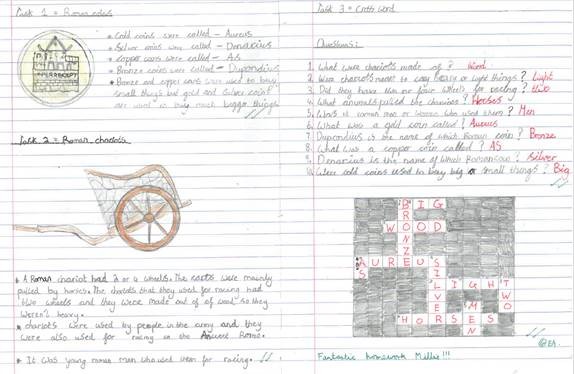 Task 1 = Roman coins
• Gold coins were called - Aureus
• Silver coins were called - Denarius
• Copper coins were called - As
• Bronze coins were called - Dupondius
• Bronze and copper coins were used to buy
small things but gold and silver coins
are used to buy much bigger things
Task 2 = Roman chariots
• A Roman chariot had 2 or 4 wheels. The carts were mainly
pulled by horses. The chariots that they used for racing had
two wheels and they were made out of wood so they
weren't heavy.
• chariots were used by people in the army and they
were also used for racing in the Ancient Rome.
• It was young roman men who used them for racing.
Task 3 = Cross Word
Questions:
1. What were chariots made of? Wood
2. Were chariots meant to carry heavy or light things? Light
3. Did they have two or four wheels for racing? two
4. What animals pulled the chariots? Horses
5. Was it roman men or women who used them? Men
6. What was a gold coin called? Aureus
7. Dupondius is the name of which Roman coin? Bronze
8. What was a copper coin called? AS
9. Denarius is the name of which Roman coin? Silver
10. Were gold coins used to buy big or small things? Big
BIG
BRONZE
WOOD
AUREUS
AS
SILVER
LIGHT
TWO
MEN
HORSES
@EA.
Fantastic homework Millie!!!